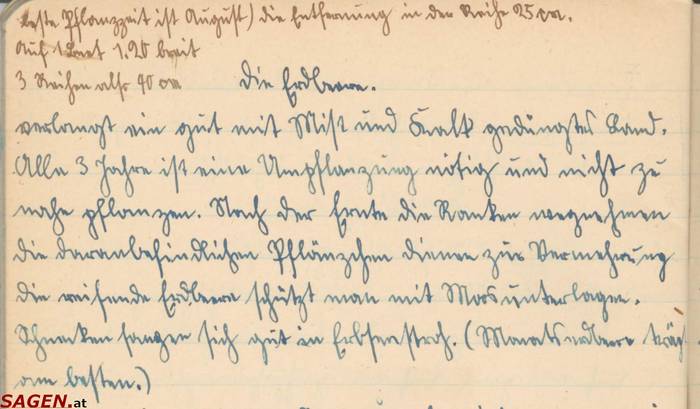 beste Pflanzzeit ist August) die Entfernung in der Reihe 25 cm.
Auf 1 Beet 1.20 breit
3 Reihen also 40 cm
Die Erdbeere.
verlangt ein gut mit Mist und Kalk gedüngtes Land.
Alle 3 Jahre ist eine Umpflanzung nötig und nicht zu
nahe pflanzen. Nach der Ernte die Ranken wegnehmen
die daranbefindlichen Pflänzchen dienen zur Vermehrung
die reifende Erdbeere schützt man mit Moosunterlagen.
Schnecken fangen sich gut in Erbsenstroh. (Monatserdbeere trägt
am besten.)
SAGEN.at